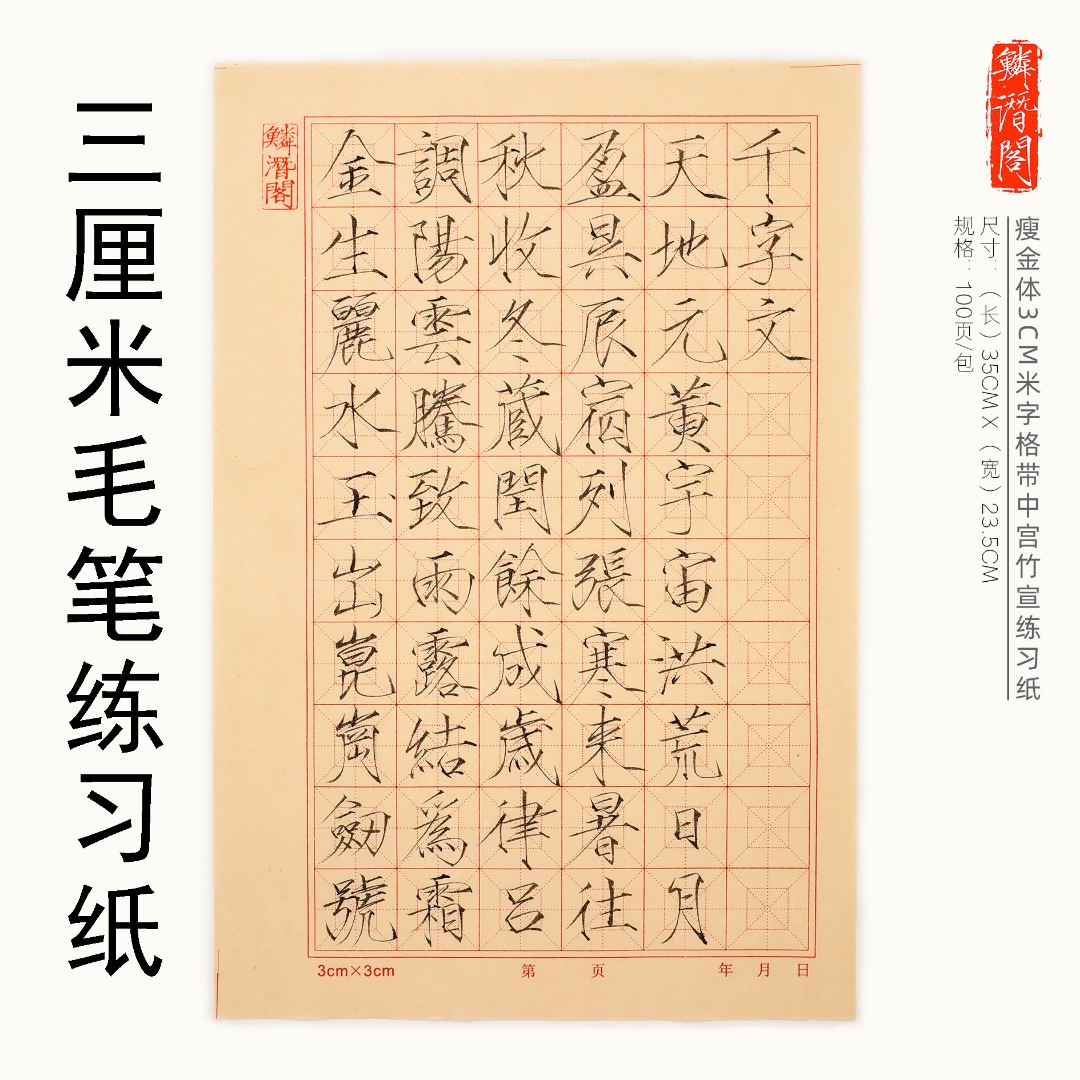 三厘米毛笔练习纸
鳞潛閣
瘦金体3CM米字格带中宫竹宣练习纸
尺寸：（长）35CM X（宽）23.5CM
规格：100页/包
千字文
天地元黃宇宙洪荒日月
盈昃辰宿列張寒来暑往
秋收冬蔵閏餘成歲律呂
調陽雲騰致雨露結爲霜
金生麗水玉出崑崗劒號
鳞潛閣
3cm×3cm 第 页 年 月 日